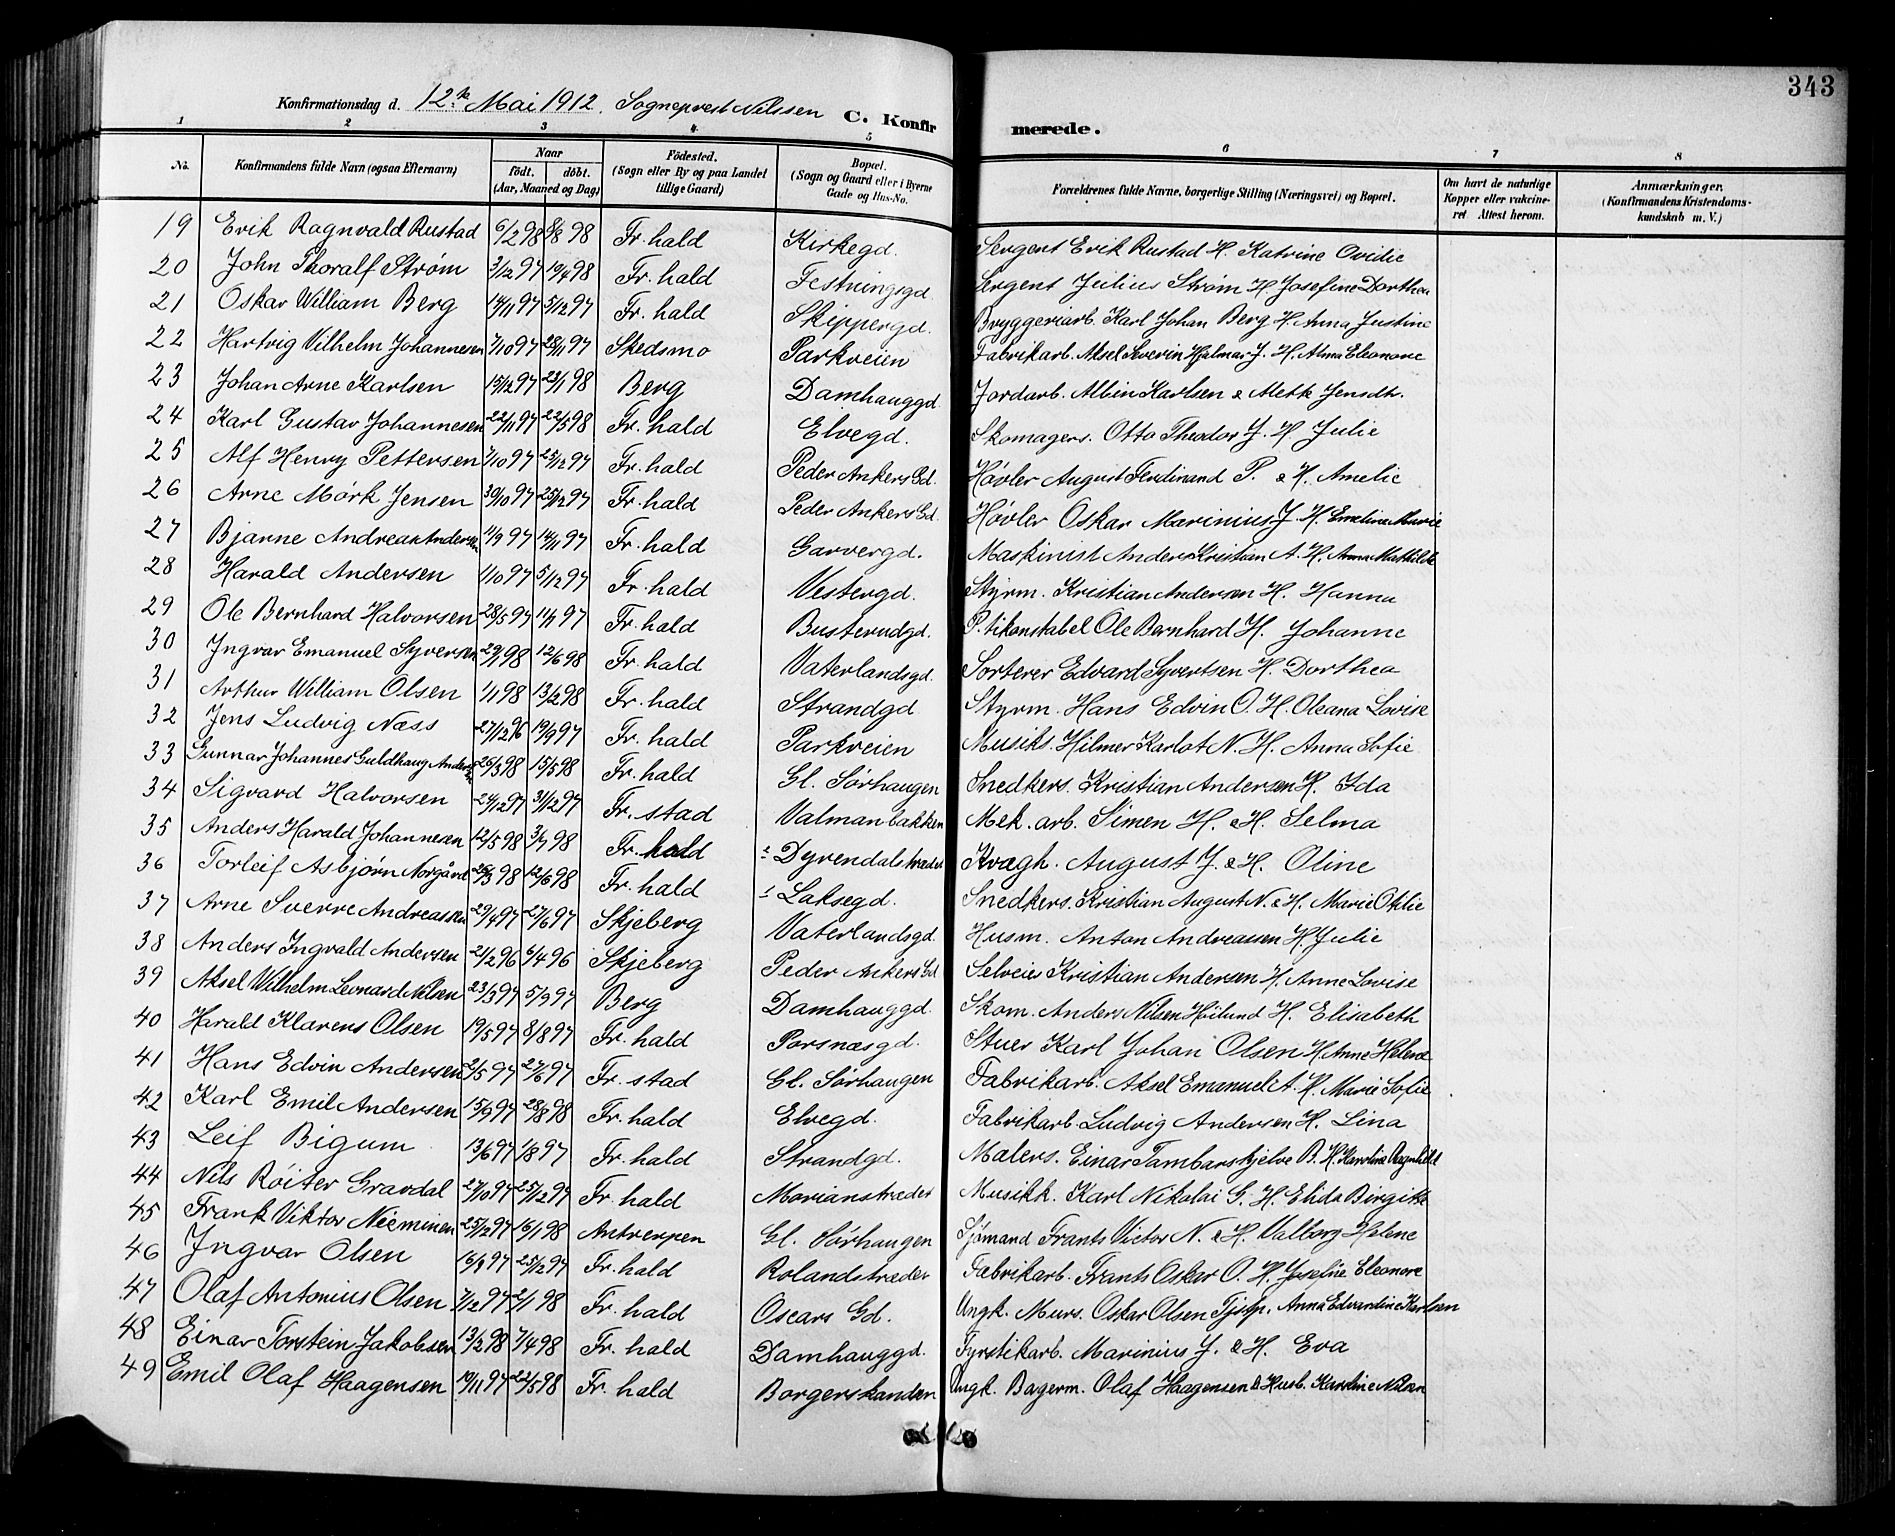 343
Konfirmationsdag d. 12te Mai 1912. Sogneprest Nilssen C. Konfirmerede.
1 2 3 4 5 6 7 8
No. Konfirmandens fulde Navn (ogsaa Efternavn) Naar født. døbt. (Aar, Maaned og Dag) Fødested. (Sogn eller By og paa Landet tillige Gaard) Bopæl. (Sogn og Gaard eller i Byerne Gade og Hus-No. Forældrenes fulde Navne, borgerlige Stilling (Næringsvei) og Bopæl. Om havt de naturlige Kopper eller vaccineret. Attest herom. Anmærkninger. (Konfirmandens Kristendomskundskab m. V.)
19 Erik Ragnvald Rustad 6/2 98 98 Fr. hald Kirkegd. Sergent Erik Rustad H. Katrine Ovidie
20 John Thoralf Strøm 3/12 97 19/4 98 Fr. hald Festningsgd. Sergent Julius Strøm H Josefine Dorthea
21 Oskar William Berg 14/11 97 5/12 97 Fr. hald Skippergd. Bryggeriarb. Karl Johan Berg H. Anna Justine
22 Hartvig Vilhelm Johannesen 7/10 97 28/11 97 Skedsmo Parkveien Fabrikarb. Aksel Severin Hjalmar J. H. Alma Eleonore
23 Johan Arne Karlsen 15/12 97 23/1 98 Berg Damhauggd. Jordarb. Albin Karlsen & Mette Jensdtr.
24 Karl Gustav Johannesen 22/11 97 22/5 98 Fr. hald Elvegd. Skomagers. Otto Theodor J. H Julie
25 Alf Henry Pettersen 7/10 97 25/12 97 Fr. hald Peder Ankers Gd. Høvler August Ferdinand P. & H. Amelie
26 Arne Mørk Jensen 30/10 97 25/12 97 Fr. hald Peder Ankers Gd. Høvler Oskar Marinius J. H. Emeline Marie
27 Bjarne Andreas Andersen 11/9 97 14/11 97 Fr. hald Garvergd. Maskinist Anders Kristian A. H. Anna Mathilde
28 Harald Andersen 1/10 97 5/12 97 Fr. hald Vestergd. Styrm. Kristian Andersen H. Hanna
29 Ole Bernhard Halvorsen 28/5 97 11/7 97 Fr. hald Busterudgd. P.tikonstabel Ole Bernhard H. Johanne
30 Ingvar Emanuel Syversen 29/1 98 12/6 98 Fr. hald Vaterlandsgd. Sorterer Edvard Syvertsen H. Dorthea
31 Arthur William Olsen 1/1 98 13/2 98 Fr. hald Strandgd Styrm. Hans Edvin O. H. Oleana Lovise
32 Jens Ludvig Næss 27/12 96 19/9 97 Fr. hald Parkveien Musiks. Hilmer Karlot N. H. Anna Sofie
33 Gunnar Johannes Guldhaug Andersen 25/3 98 15/5 98 Fr. hald Gl. Sørhaugen Snedkers. Kristian Andersen H. Ida
34 Sigvard Halvorsen 97 31/12 97 Fr. stad Valman bakken Mek. arb. Simen H. & H. Selma
35 Anders Harald Johannesen 12/5 98 3/7 98 Fr. hald Dyrendalstræder Kvægh. August J. & H. Oline
36 Torleif Asbjørn Norgård 98 12/6 98 Fr. hald Laksegd. Snedkers. Kristian August N. & H. Marie Otilie
37 Arne Sverre Andreassen 29/4 97 27/6 97 Skjeberg Vaterlandsgd. Husm. Anton Andreassen H Julie
38 Anders Ingvald Andersen 21/2 96 6/4 96 Skjeberg Peder Ankers Gd Selveier Kristian Andersen H. Anne Lovise
39 Aksel Wilhelm Leonard Nilsen 23/3 97 5/9 97 Berg Damhauggd. Skom. Anders Nilsen Høilund H. Elisabeth
40 Harald Klarens Olsen 19/5 97 8/8 97 Fr. hald Porsnæsgd. Stuer Karl Johan Olsen H. Anne Helene
41 Hans Edvin Andersen 2/5 97 27/6 97 Fr. stad Gl. Sørhaugen Fabrikarb. Aksel Emanuel A. H. Marie Sofie
42 Karl Emil Andersen 15/9 97 28/8 98 Fr. hald Elvegd. Fabrikarb. Ludvig Andersen H. Lina
43 Leif Bigum 13/6 97 1/8 97 Fr. hald Strandgd. Malers. Einar Tambarskjelve B. H. Karoline Ragnhild
44 Nils Røiter Gravdal 27/10 97 25/12 97 Fr. hald Marianstræder Musikk. Karl Nikolai G. H. Elida Birgitte
45 Frank Viktor Nieminen 25/12 97 16/1 98 Antverpen Gl. Sørhaugen Sjømand Frants Victor N. & H. Valborg Helene
46 Ingvar Olsen 97 25/12 97 Fr. hald Rolandstræder Fabrikarb. Frants Oskar O. H. Josefine Eleonore
47 Olaf Antonius Olsen 7/12 97 2/1 98 Fr. hald Oscars Gd. Ungk. Murs. Oskar Olsen Tjsfp. Anna Edvardine Karlsen
48 Einar Torstein Jakobsen 13/2 98 7/4 98 Fr. hald Damhauggd. Fyrstikarb. Marinius J. & H. Eva
49 Emil Olaf Haagensen 19/11 97 22/5 98 Fr. hald Borgerskansen Ungk. Bagerm. Olaf Haagensen & Husb. Karoline Nilsen